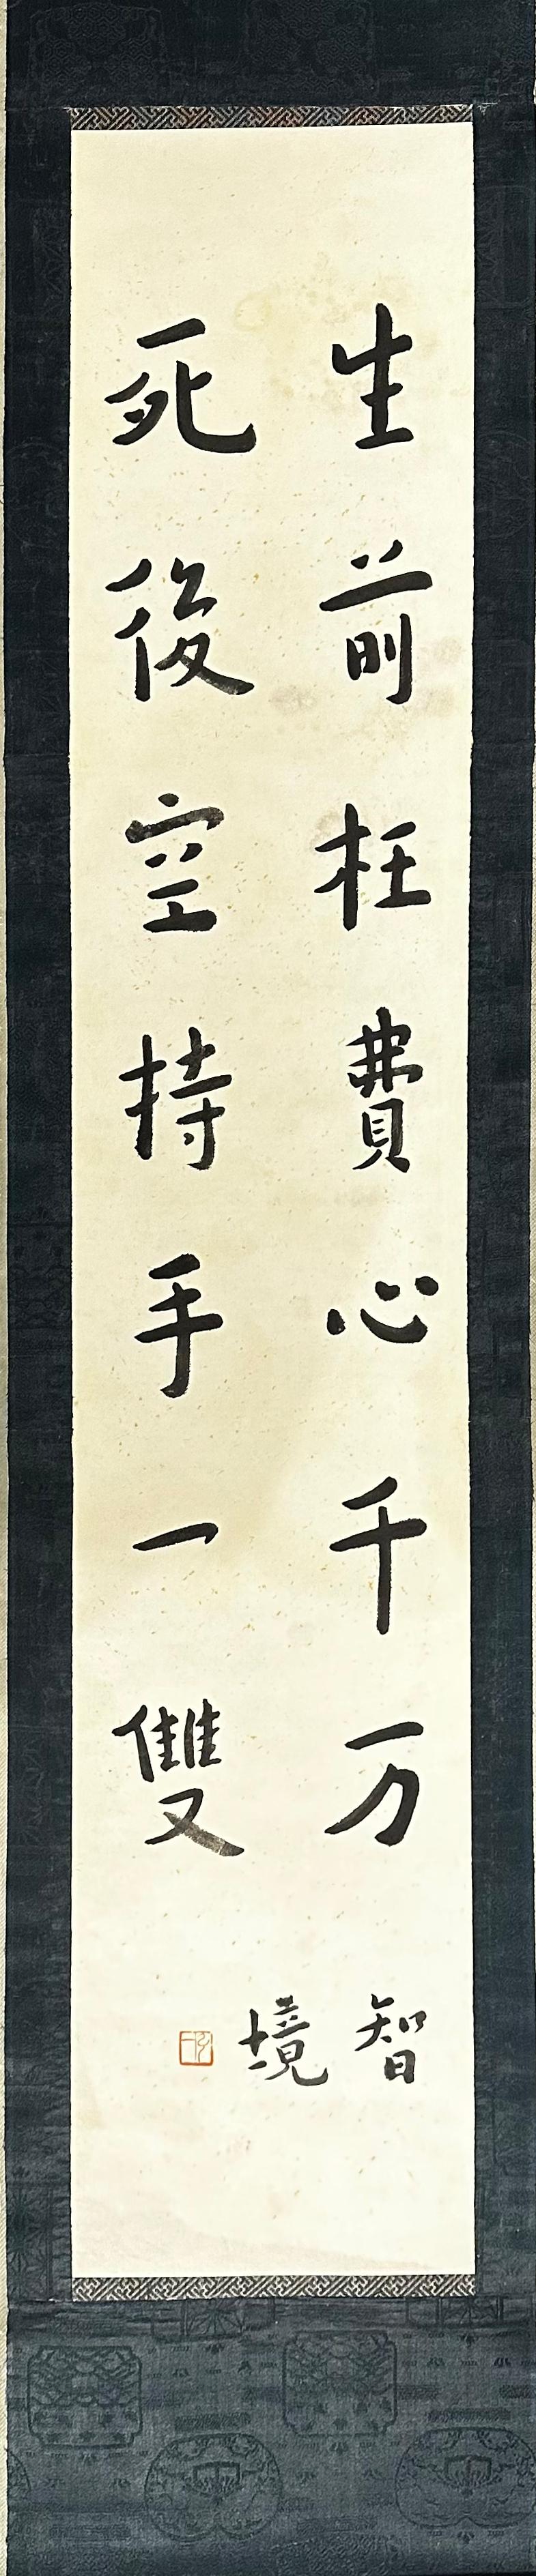 生前枉費心千万
死後空持手一雙
智境